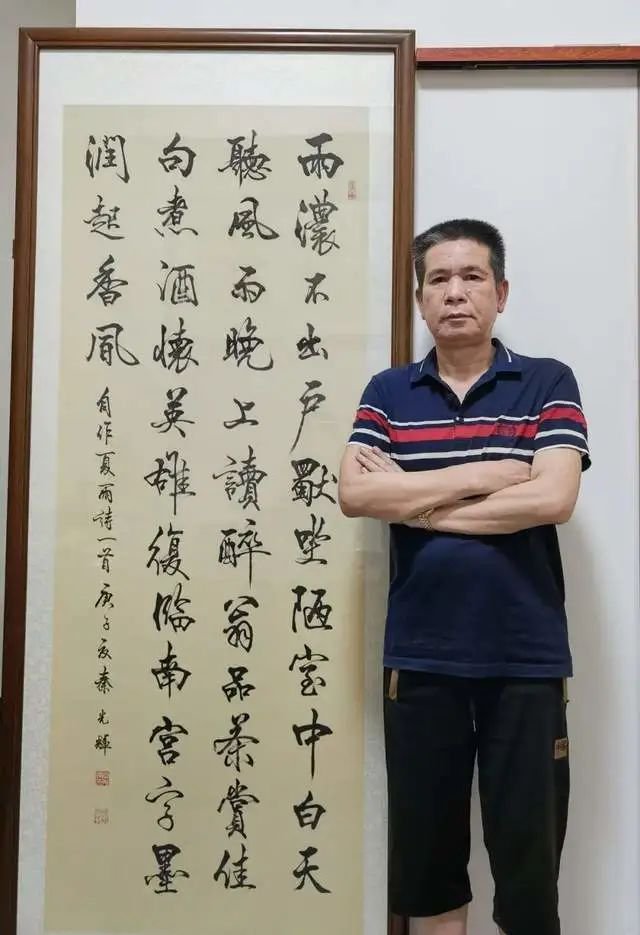 雨濃不出戶默坐陋室中白天
聽風雨晚上讀醉翁品茶賞佳
句煮酒懷英雄復臨南宮字墨
潤起香風 自作夏雨詩一首庚子夏秦光輝